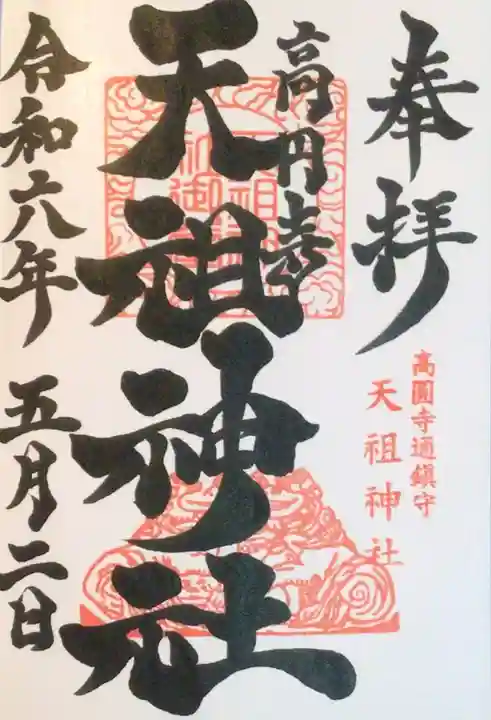 奉拝
高円寺
天祖神社
令和六年 五月二日
高圓寺通鎮守
天祖神社